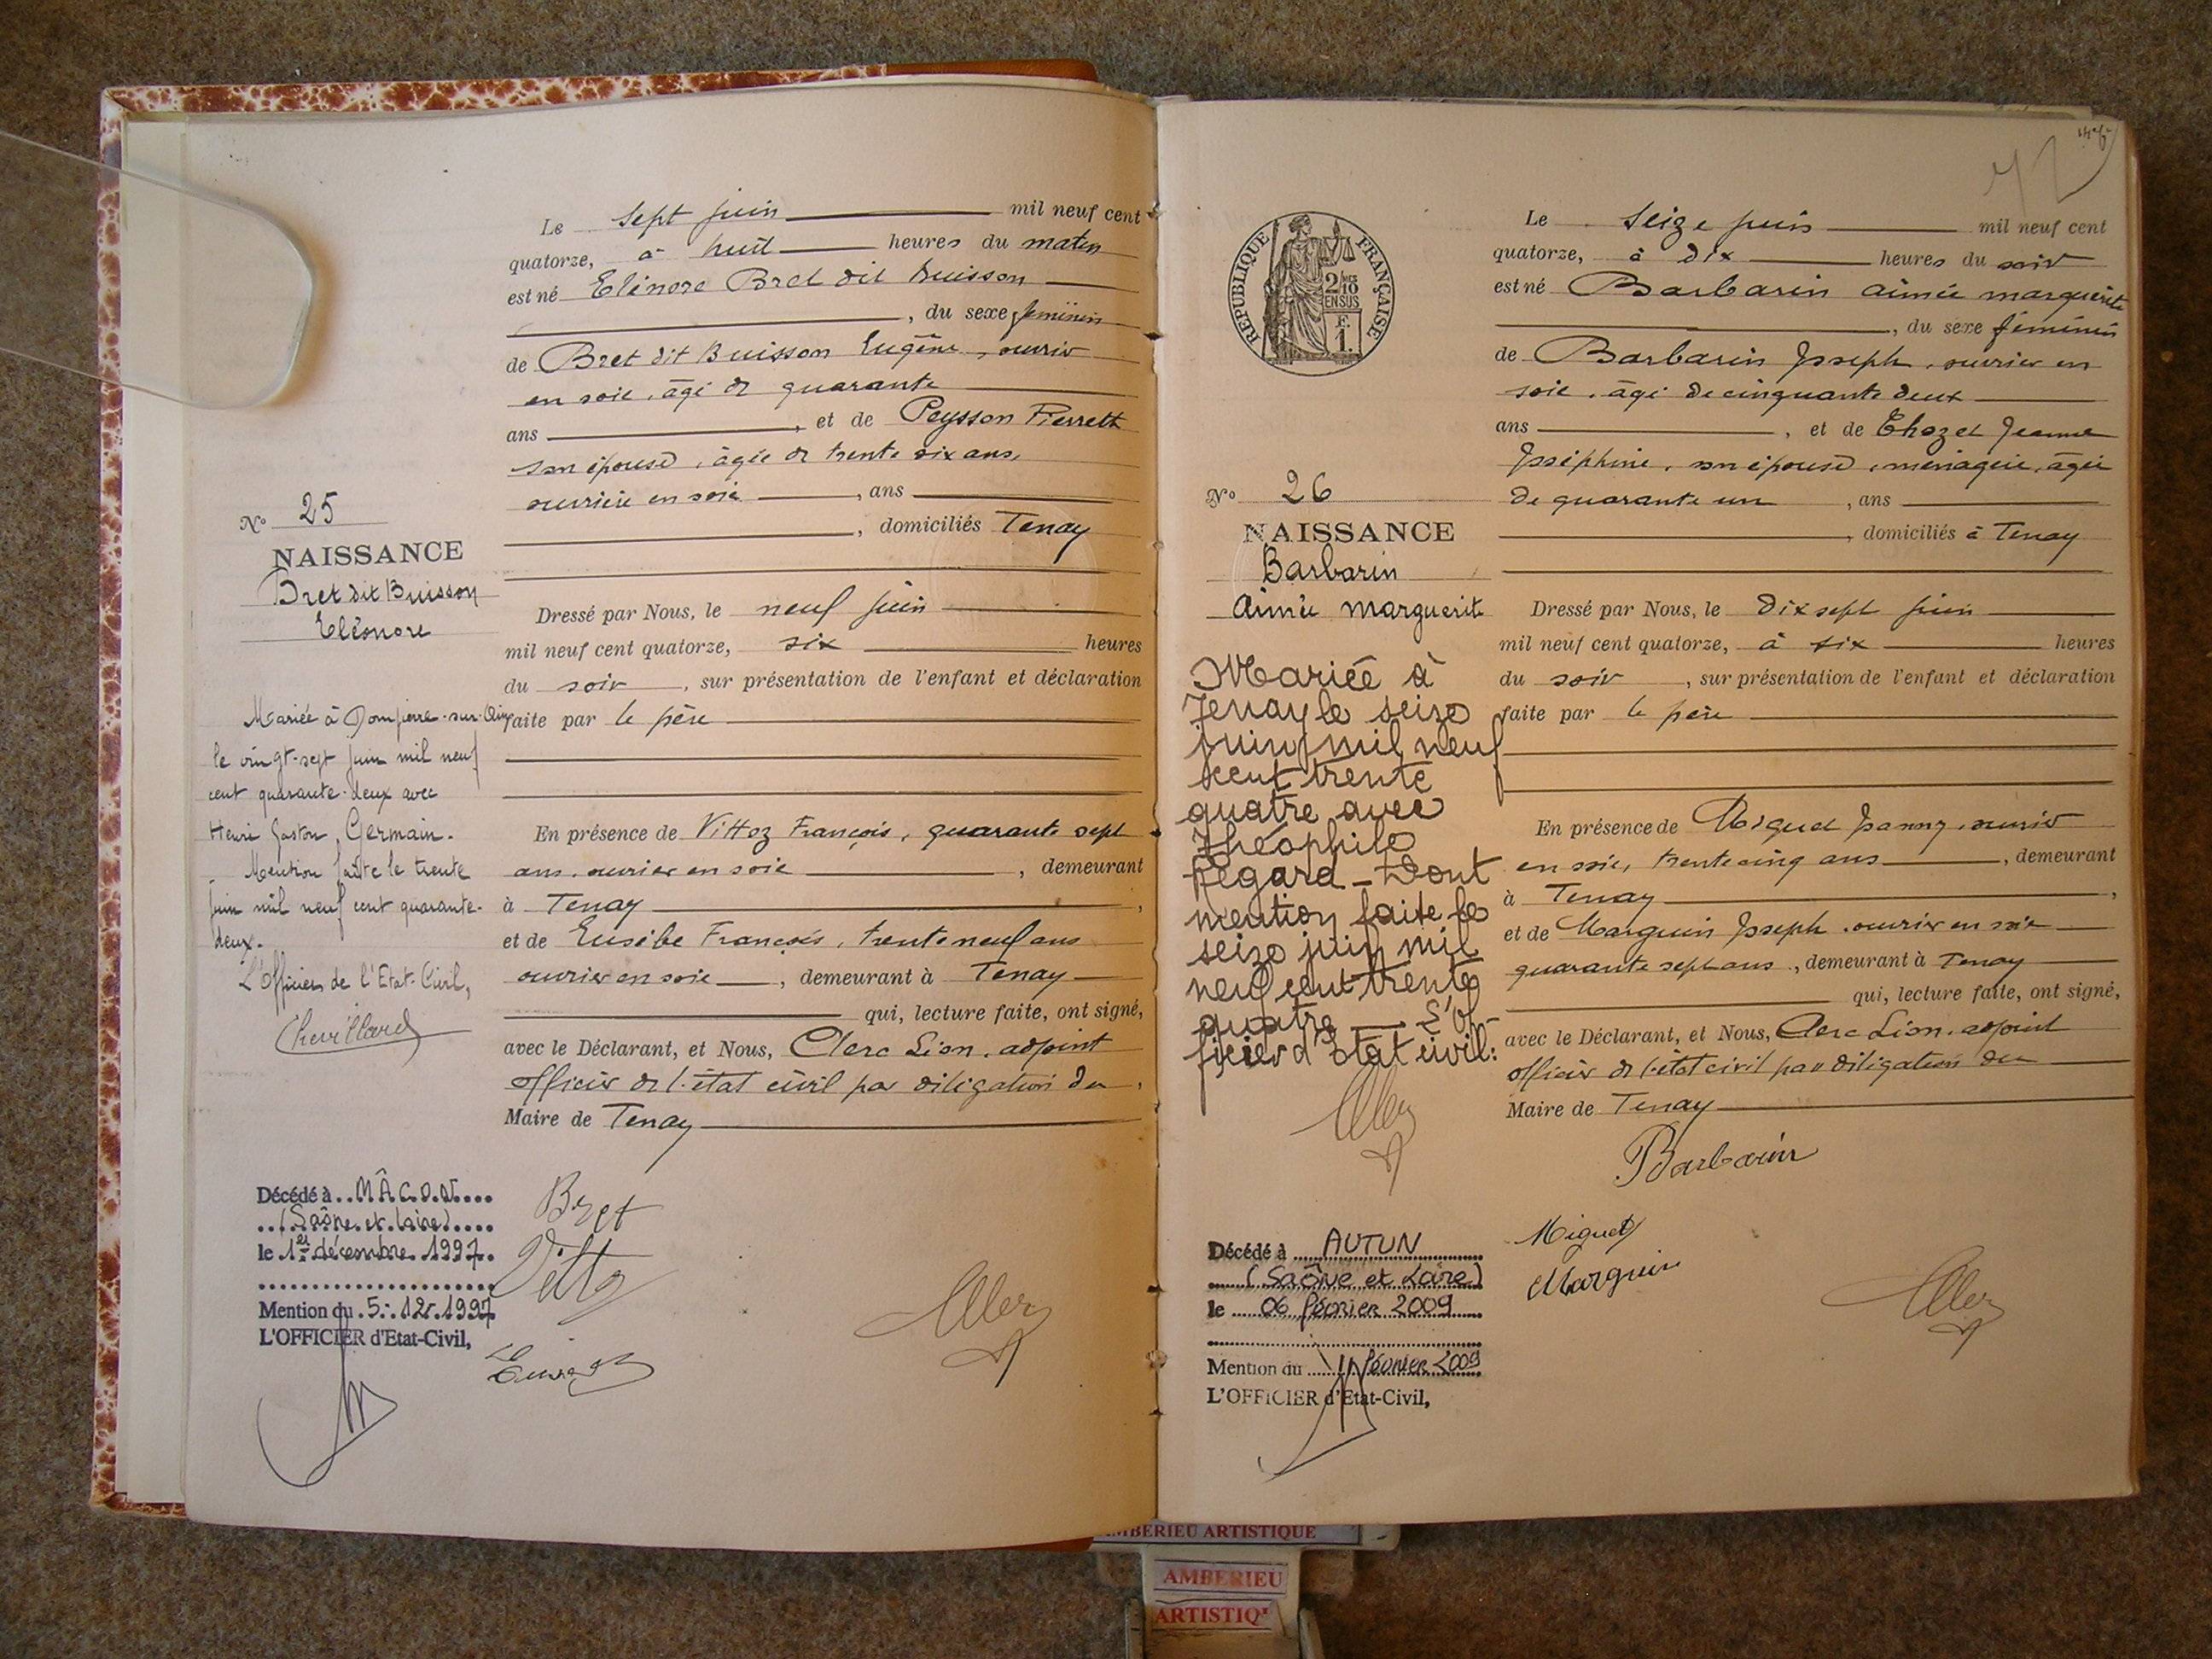 Le sept juin mil neuf cent
quatorze, à huit heures du matin
est né Elénore Bret dit Buisson
, du sexe féminin
de Bret dit Buisson Eugène, ouvrier
en soie, âgé de quarante
ans , et de Peysson Pierrette
son épouse, âgée de trente six ans,
ouvrière en soie , ans
, domiciliés Tenay
Dressé par Nous, le neuf juin
mil neuf cent quatorze, six heures
du soir , sur présentation de l'enfant et déclaration
faite par le père
En présence de Vittoz François, quarante sept
ans, ouvrier en soie , demeurant
à Tenay ,
et de Eusèbe François, trente neuf ans
ouvrier en soie , demeurant à Tenay
qui, lecture faite, ont signé,
avec le Déclarant, et Nous, Clerc Léon, adjoint
officier de l'état civil par délégation du
Maire de Tenay
N° 25
NAISSANCE
Bret dit Buisson
Eléonore
Mariée à Dompierre-sur-Ain
le vingt-sept juin mil neuf
cent quarante-deux avec
Henri Gaston Germain.
Mention faite le trente
juin mil neuf cent quarante-
deux.
L'Officier de l'Etat-Civil,
Chevillard
Décédé à MÂCON
(Saône et Loire)
le 1er décembre 1997
Mention du 5.12.1997
L'OFFICIER d'Etat-Civil,
Bret
Vittoz
Clerc
72
REPUBLIQUE FRANÇAISE
2/10
EN SUS
F.
1.
Le Seize juin mil neuf cent
quatorze, à dix heures du soir
est né Barbarin aimée marguerite
, du sexe féminin
de Barbarin Joseph, ouvrier en
soie, âgé de cinquante deux
ans , et de Chozet Jeanne
Joséphine, son épouse, ménagère, âgée
de quarante un , ans
, domiciliés à Tenay
Dressé par Nous, le dix sept juin
mil neuf cent quatorze, à six heures
du soir , sur présentation de l'enfant et déclaration
faite par le père
En présence de Miguet Janny, ouvrier
en soie, trente cinq ans , demeurant
à Tenay ,
et de Marguin Joseph, ouvrier en soie
quarante sept ans , demeurant à Tenay
qui, lecture faite, ont signé,
avec le Déclarant, et Nous, Clerc Léon, adjoint
officier de l'état civil par délégation du
Maire de Tenay
N° 26
NAISSANCE
Barbarin
Aimée marguerite
Mariée à
Tenay le seize
juin mil neuf
cent trente
quatre avec
Théophile
Régard - Dont
mention faite le
seize juin mil
neuf cent trente
quatre — L'of-
ficier d'Etat civil:
Clerc
Barbarin
Miguet
Marguin
Clerc
Décédé à AUTUN
(Saône et Loire)
le 06 février 2009
Mention du 11 février 2009
L'OFFICIER d'Etat-Civil,
AMBERIEU ARTISTIQUE
AMBERIEU
ARTISTIQ